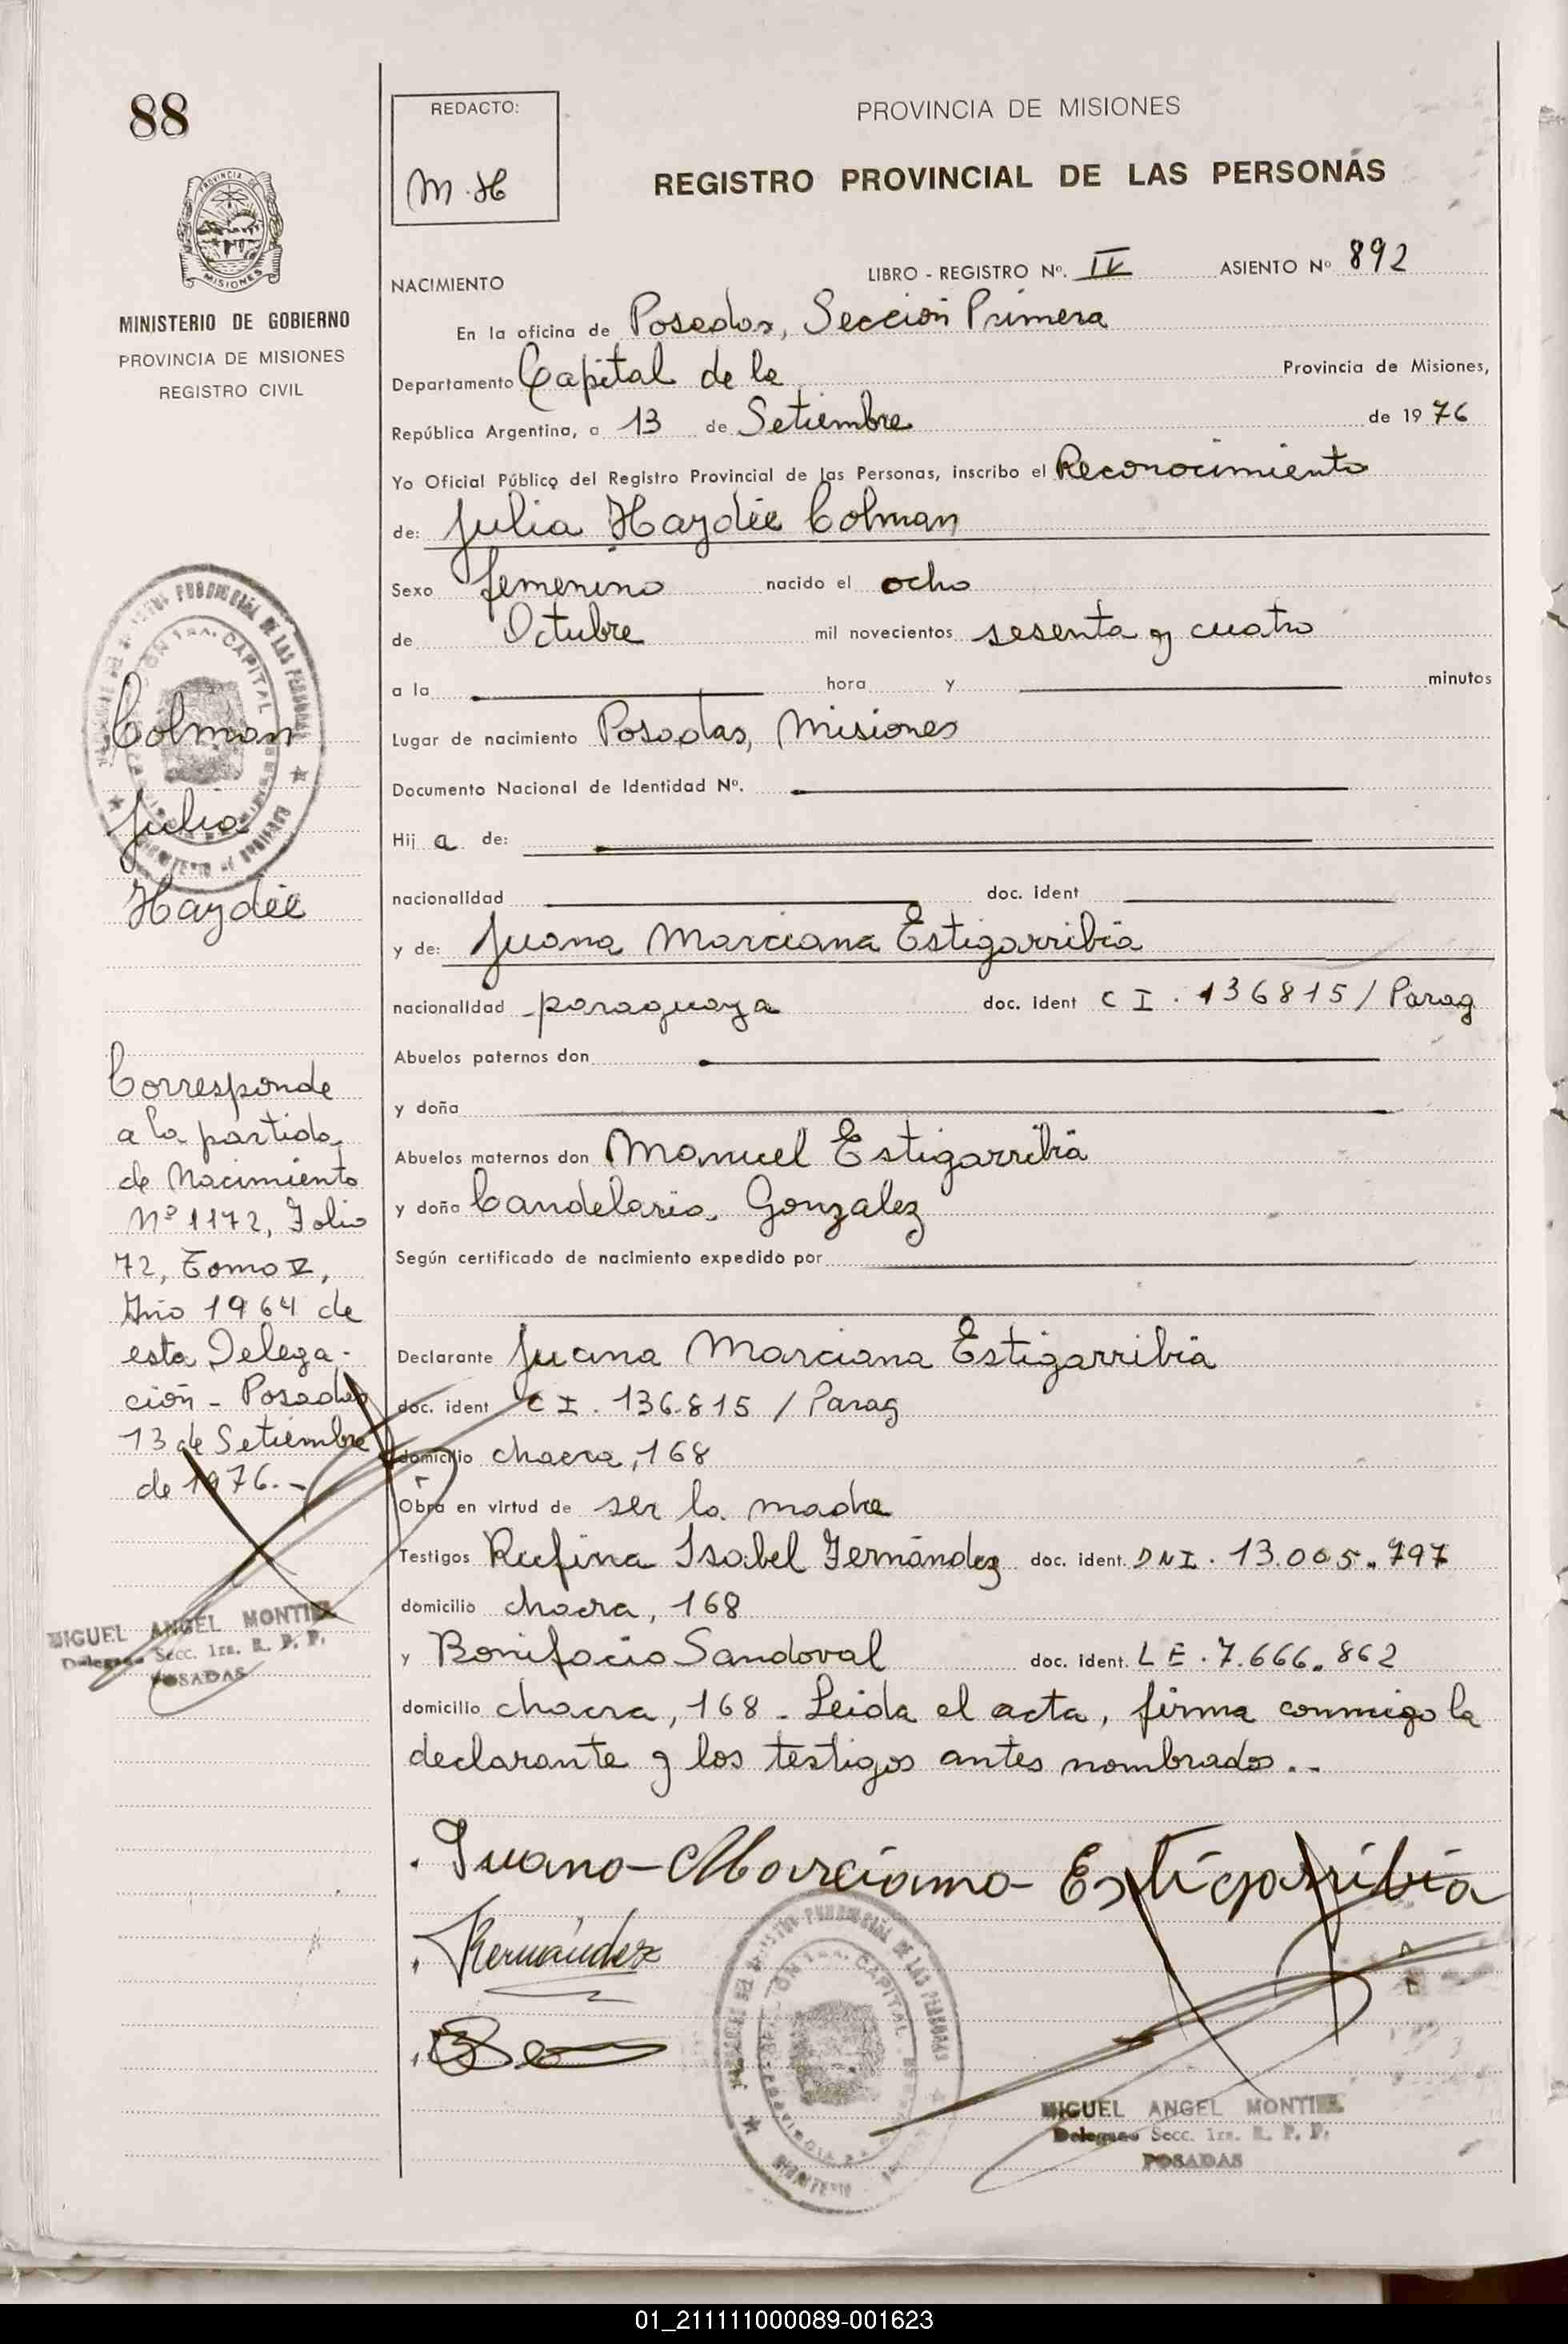 88
PROVINCIA DE
MISIONES
MINISTERIO DE GOBIERNO
PROVINCIA DE MISIONES
REGISTRO CIVIL
Colman
Julia
Haydée
Corresponde
a la partida
de Nacimiento
Nº 1172, Folio
72, Tomo V,
Año 1964 de
esta Delega-
ción - Posadas
13 de Setiembre
de 1976.-
MIGUEL ANGEL MONTIEL
Delegado Secc. 1ra. R. P. P.
POSADAS
REDACTO:
M.H
PROVINCIA DE MISIONES
REGISTRO PROVINCIAL DE LAS PERSONAS
NACIMIENTO LIBRO - REGISTRO Nº. IV ASIENTO Nº 892
En la oficina de Posadas, Sección Primera
Departamento Capital de la Provincia de Misiones,
República Argentina, a 13 de Setiembre de 1976
Yo Oficial Público del Registro Provincial de las Personas, inscribo el Reconocimiento
de: Julia Haydée Colman
Sexo femenino nacido el ocho
de Octubre mil novecientos sesenta y cuatro
a la hora y minutos
Lugar de nacimiento Posadas, Misiones
Documento Nacional de Identidad Nº.
Hij a de:
nacionalidad doc. ident
y de: Juana Marciana Estigarribia
nacionalidad paraguaya doc. ident C I. 136815 / Parag
Abuelos paternos don
y doña
Abuelos maternos don Manuel Estigarribia
y doña Candelaria Gonzalez
Según certificado de nacimiento expedido por
Declarante Juana Marciana Estigarribia
doc. ident C I. 136.815 / Parag
domicilio chacra, 168
Obra en virtud de ser la madre
Testigos Rufina Isabel Fernández doc. ident. DNI. 13.005.797
domicilio chacra, 168
y Bonifacio Sandoval doc. ident. L E. 7.666.862
domicilio chacra, 168 - Leida el acta, firma conmigo la
declarante y los testigos antes nombrados..-
Juana-Marciana-Estigarribia
MIGUEL ANGEL MONTIEL
Delegado Secc. 1ra. R. P. P.
POSADAS
01_211111000089-001623